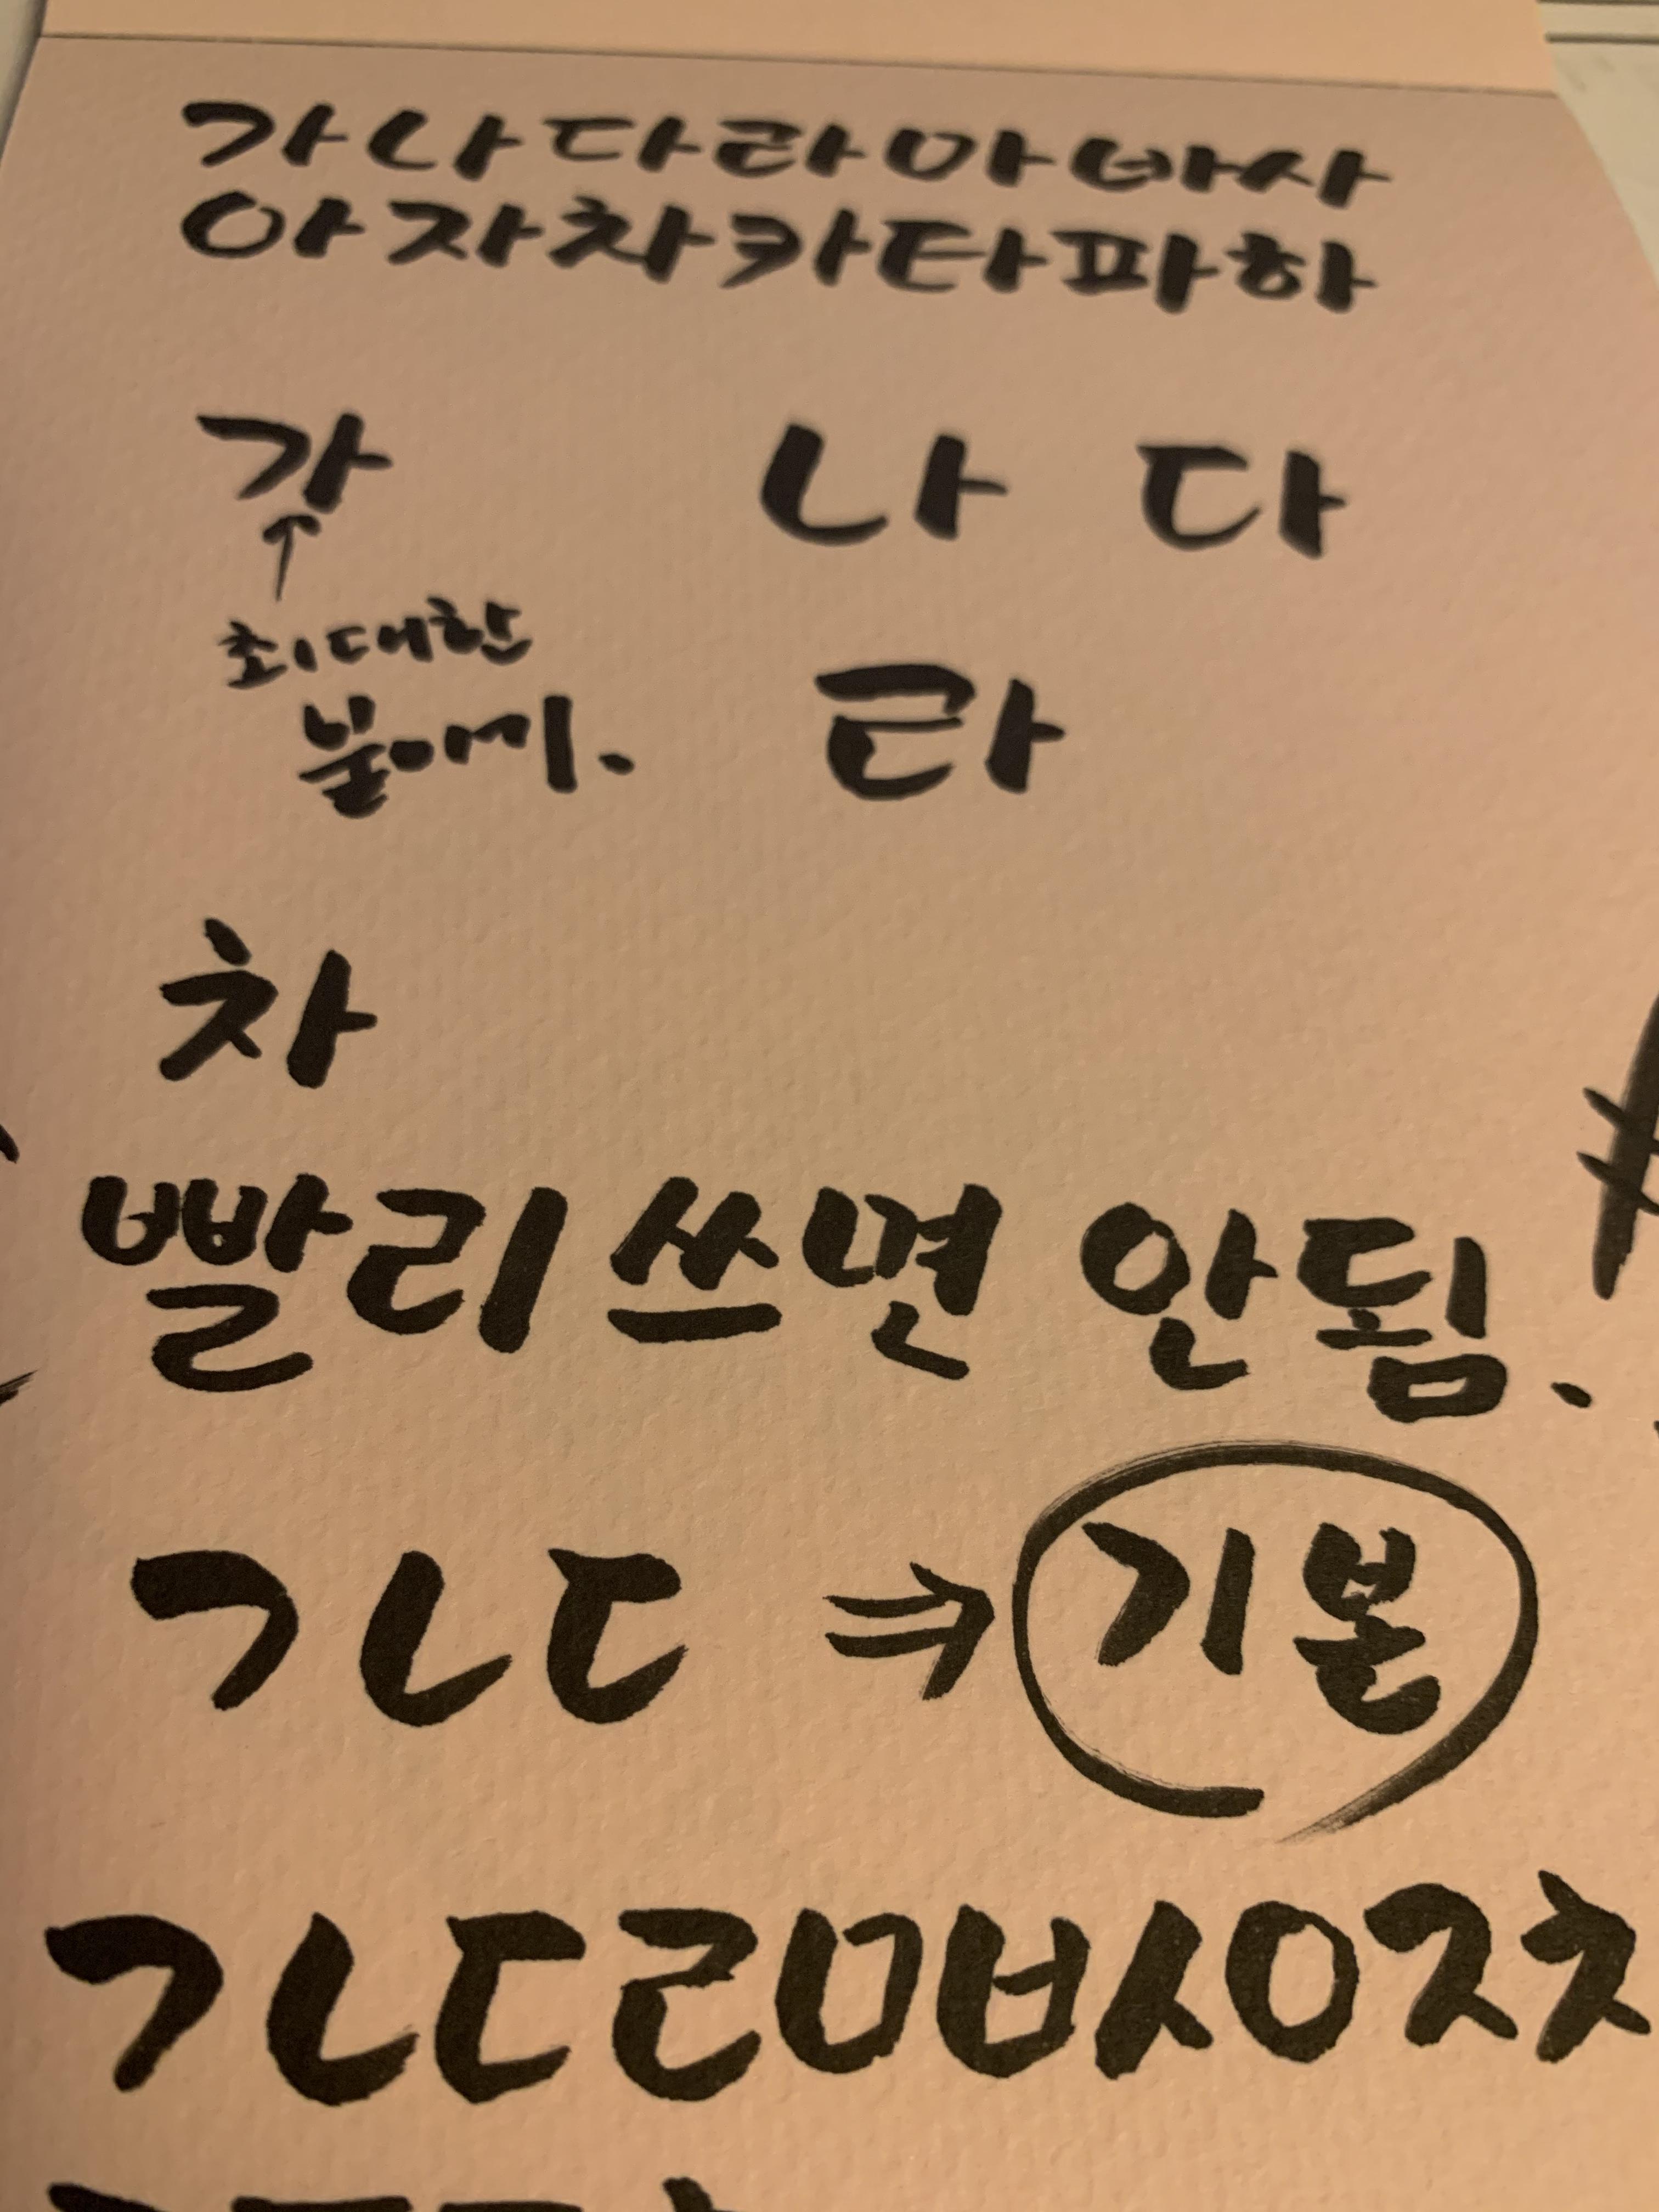 가나다라마바사
아자차카타파하
가 나 다
최대한
라
차
빨리 쓰면 안됨.
ㄱㄴㄷ ⇒ 기본
ㄱㄴㄷㄹㅁㅂㅅㅇㅈㅊ